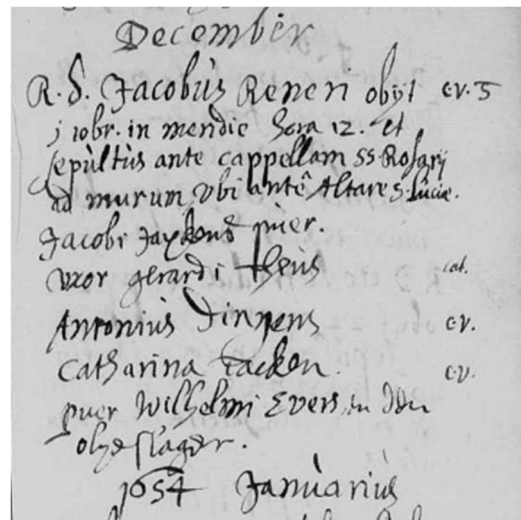 December
R. d. Jacobus Reneri obijt c.v. 5
j 10br. in meridie hora 12. et
sepùltùs ante cappellam SS. Rosarij
ad murum, ubi ante Altare S. Lùciæ.
Jacobi puer.
uxor gerardi theùs cat.
Antoniùs c.v.
Catharina tacken. c.v.
puer Wilhelmi Evers in den
olyeslager.
1654 Janùariùs